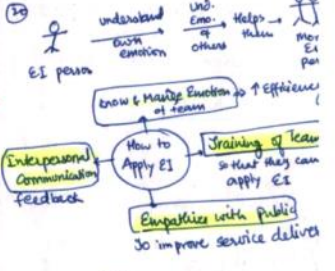 30
understand
own
emotion
Und.
Emo.
of
others
Helps
them
EI person
Know & Manage Emotion
of team
↑ Efficienc
How to
Apply EI
Training of Team
so that they can
apply EI
Interpersonal
Communication
feedback
Empathize with public
To improve service deliver